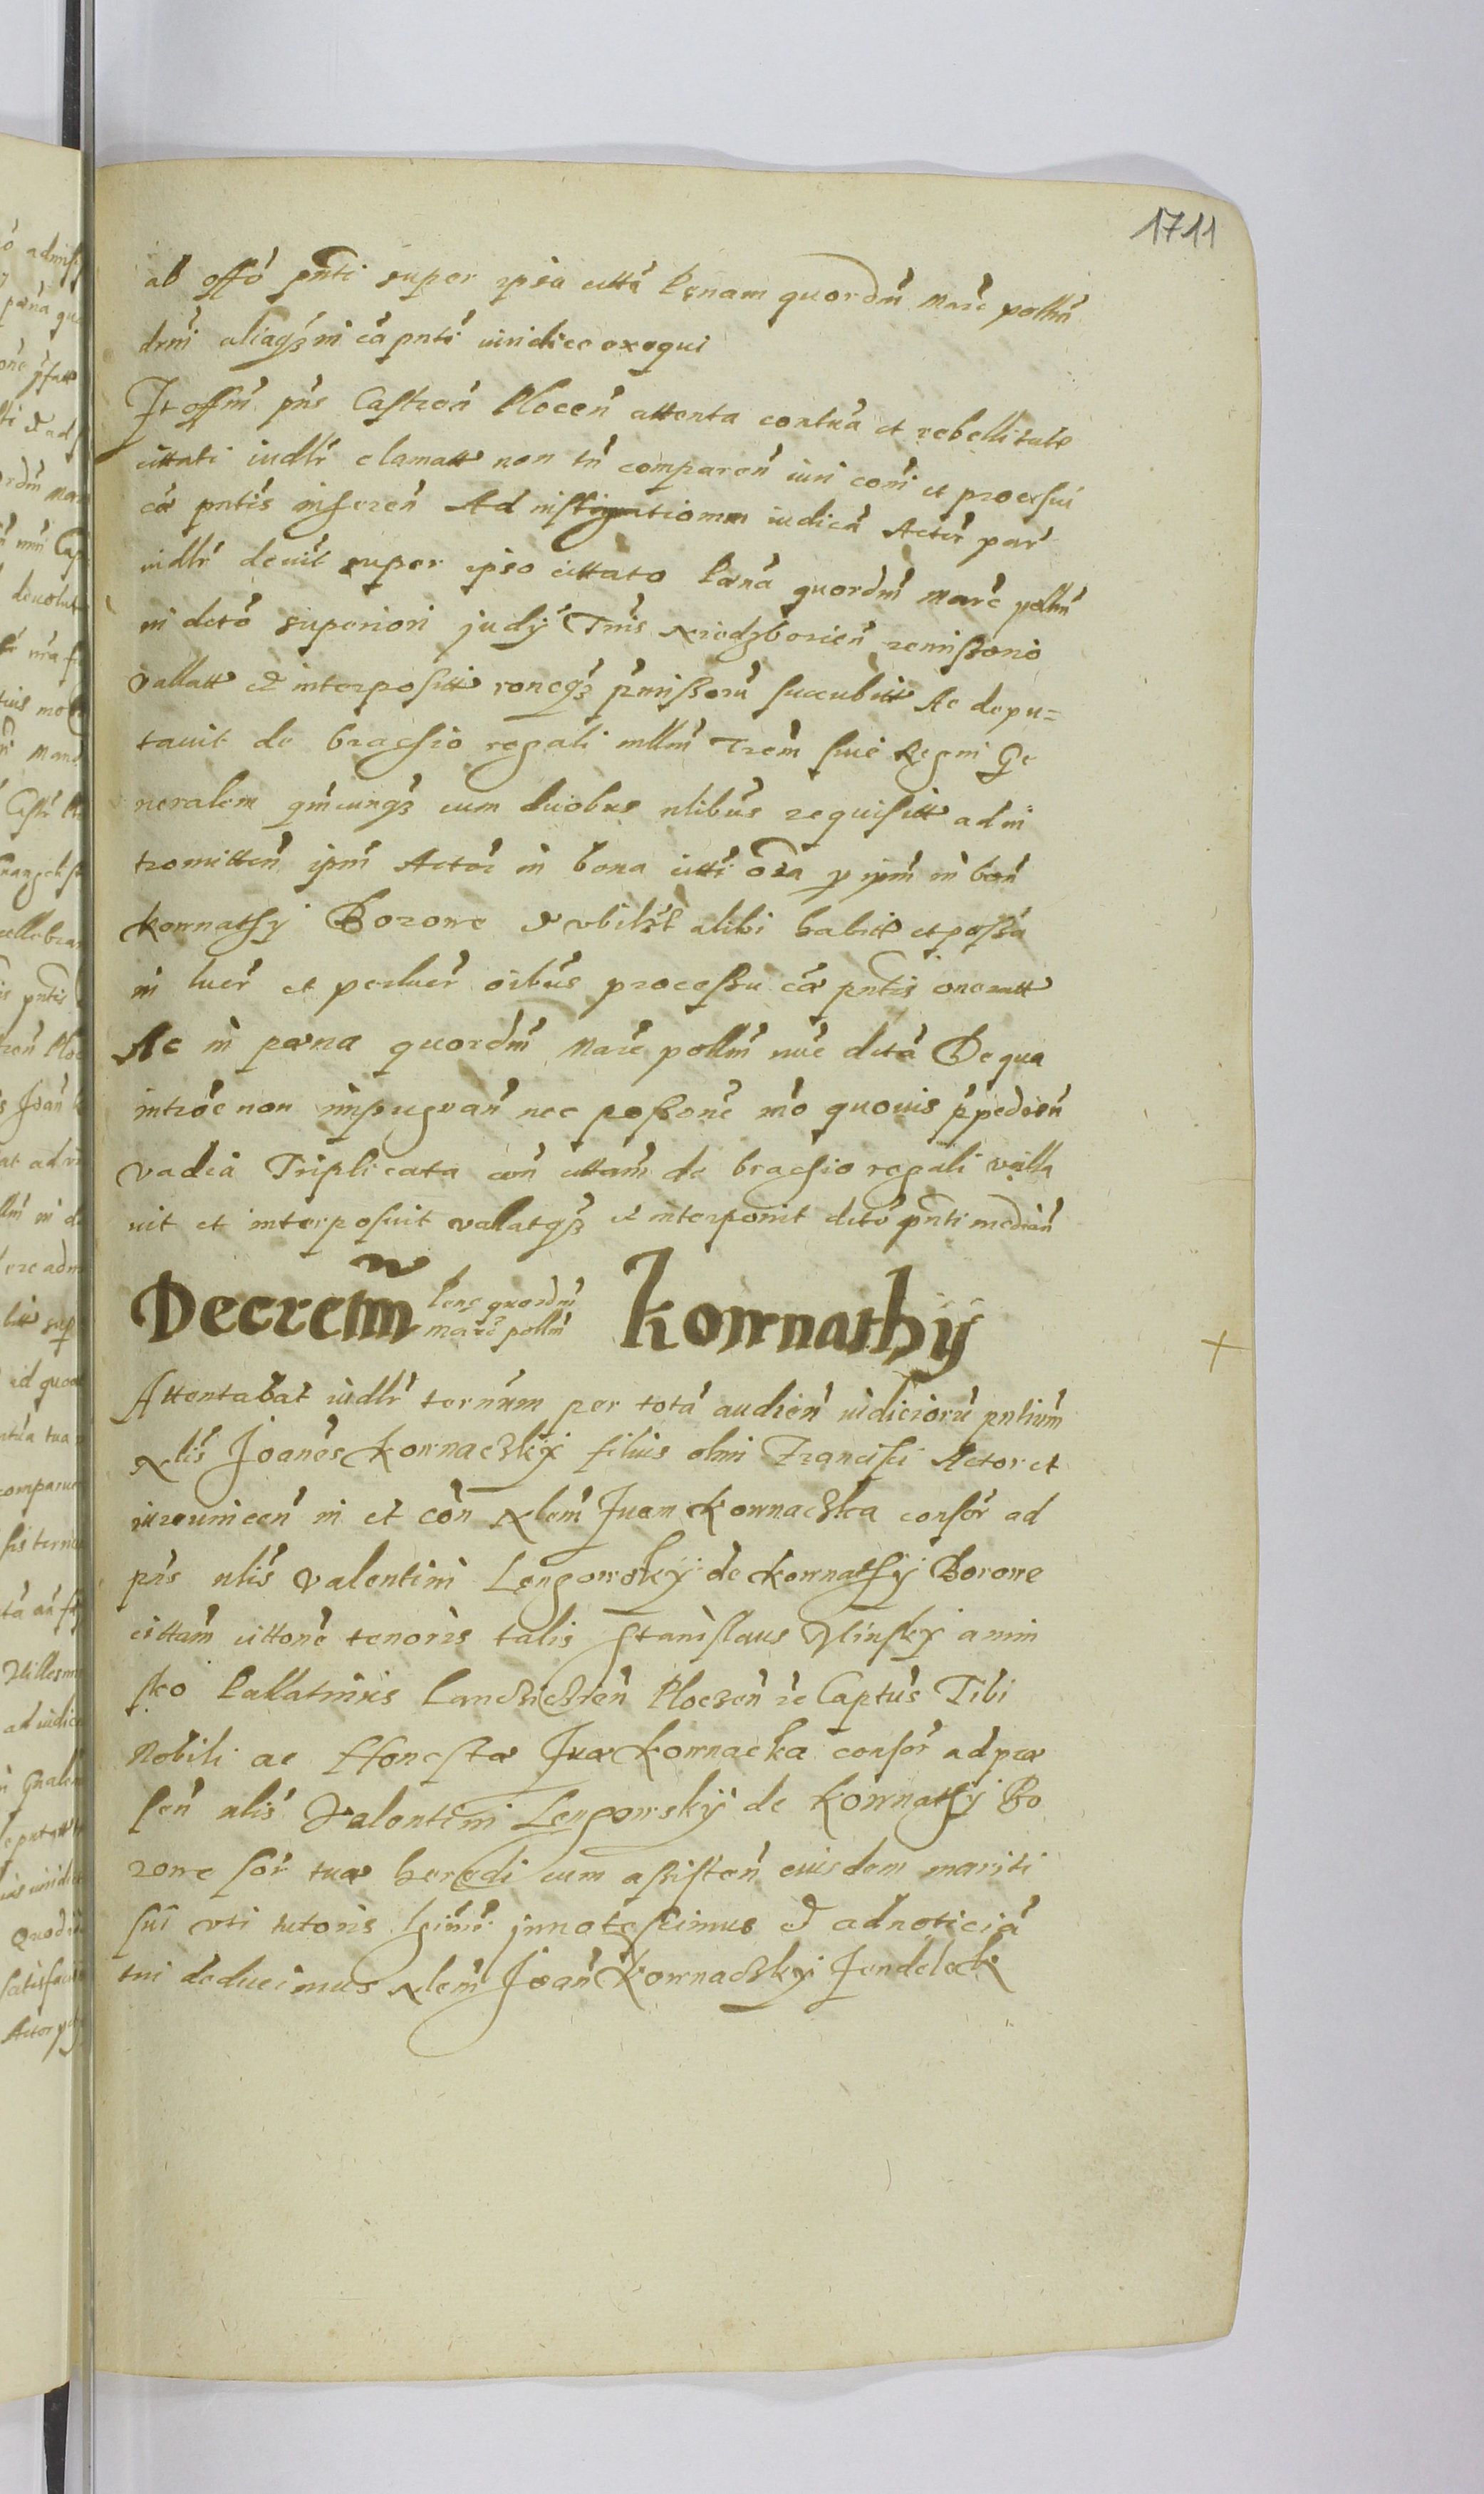 1711
ab offo pnti super ipsa citta penam quordm marc pollm
drni aliaqz in ca pnti iuridice exequi
Et offm pns Castren Plocen attenta contua et rebellitate
cittati iudlr clamatt non tn comparen iuri coni et processui
ca pntis inseren Ad instigationem iudica Actor par
iudlr decuit super ipso cittato Pœna quordm marc pollm
in decto superiori judy Tnis remissorio
vallatt et interpositt roneqz pmissoru succubitt Ac depu=
tauit de brachio regali mllm Trem siue Regni Ge
neralem qmcunqz cum duobus nlibus requisitt ad in
tromitten ipm Actor in bona citti oia p ipm in bon
Kownathy Borowe et vbilzt alibi habitt et possa
in lucr et perlucr oibus processu ca pntis oneratt
Ac in pœna quordm marc pollm nuc decta De qua
introe non impugnan nec possone mo quouis ppedien
vadia Triplicata con cittam de brachio regali valla
uit et interposuit valatqz et interponit decto pnti median
Decretm pene quordm marc pollm Kownathy
Attentabat iudlr ternum per tota audien iudicioru pntium
Nlis Joanes Kownaczky filius olim Francisci Actor et
in et con Nlem Juam Kownaczka consor ad
pns nlis Valentini Lengowsky de Kownathy Borowe
cittam cittone tenoris talis Stanislaus Ilinsky a min
sko Pallatinus Lanczicien Ploczen zc Captus Tibi
Nobili ac Honestæ Juæ Kownacka consor ad præ
sen nlis Valentini Lengowsky de Kownathy Bo
rowe sor tuæ heredi cum assisten eiusdem mariti
sui vti tutoris lgimi jnnotescimus et ad noticia
tui deducimus Nlem Joan Kownaczky Jendelek